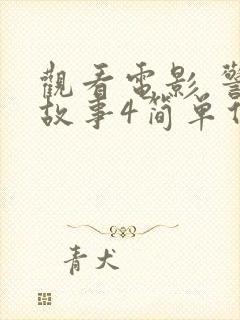 觀看電影 警
故事4簡單
青犬